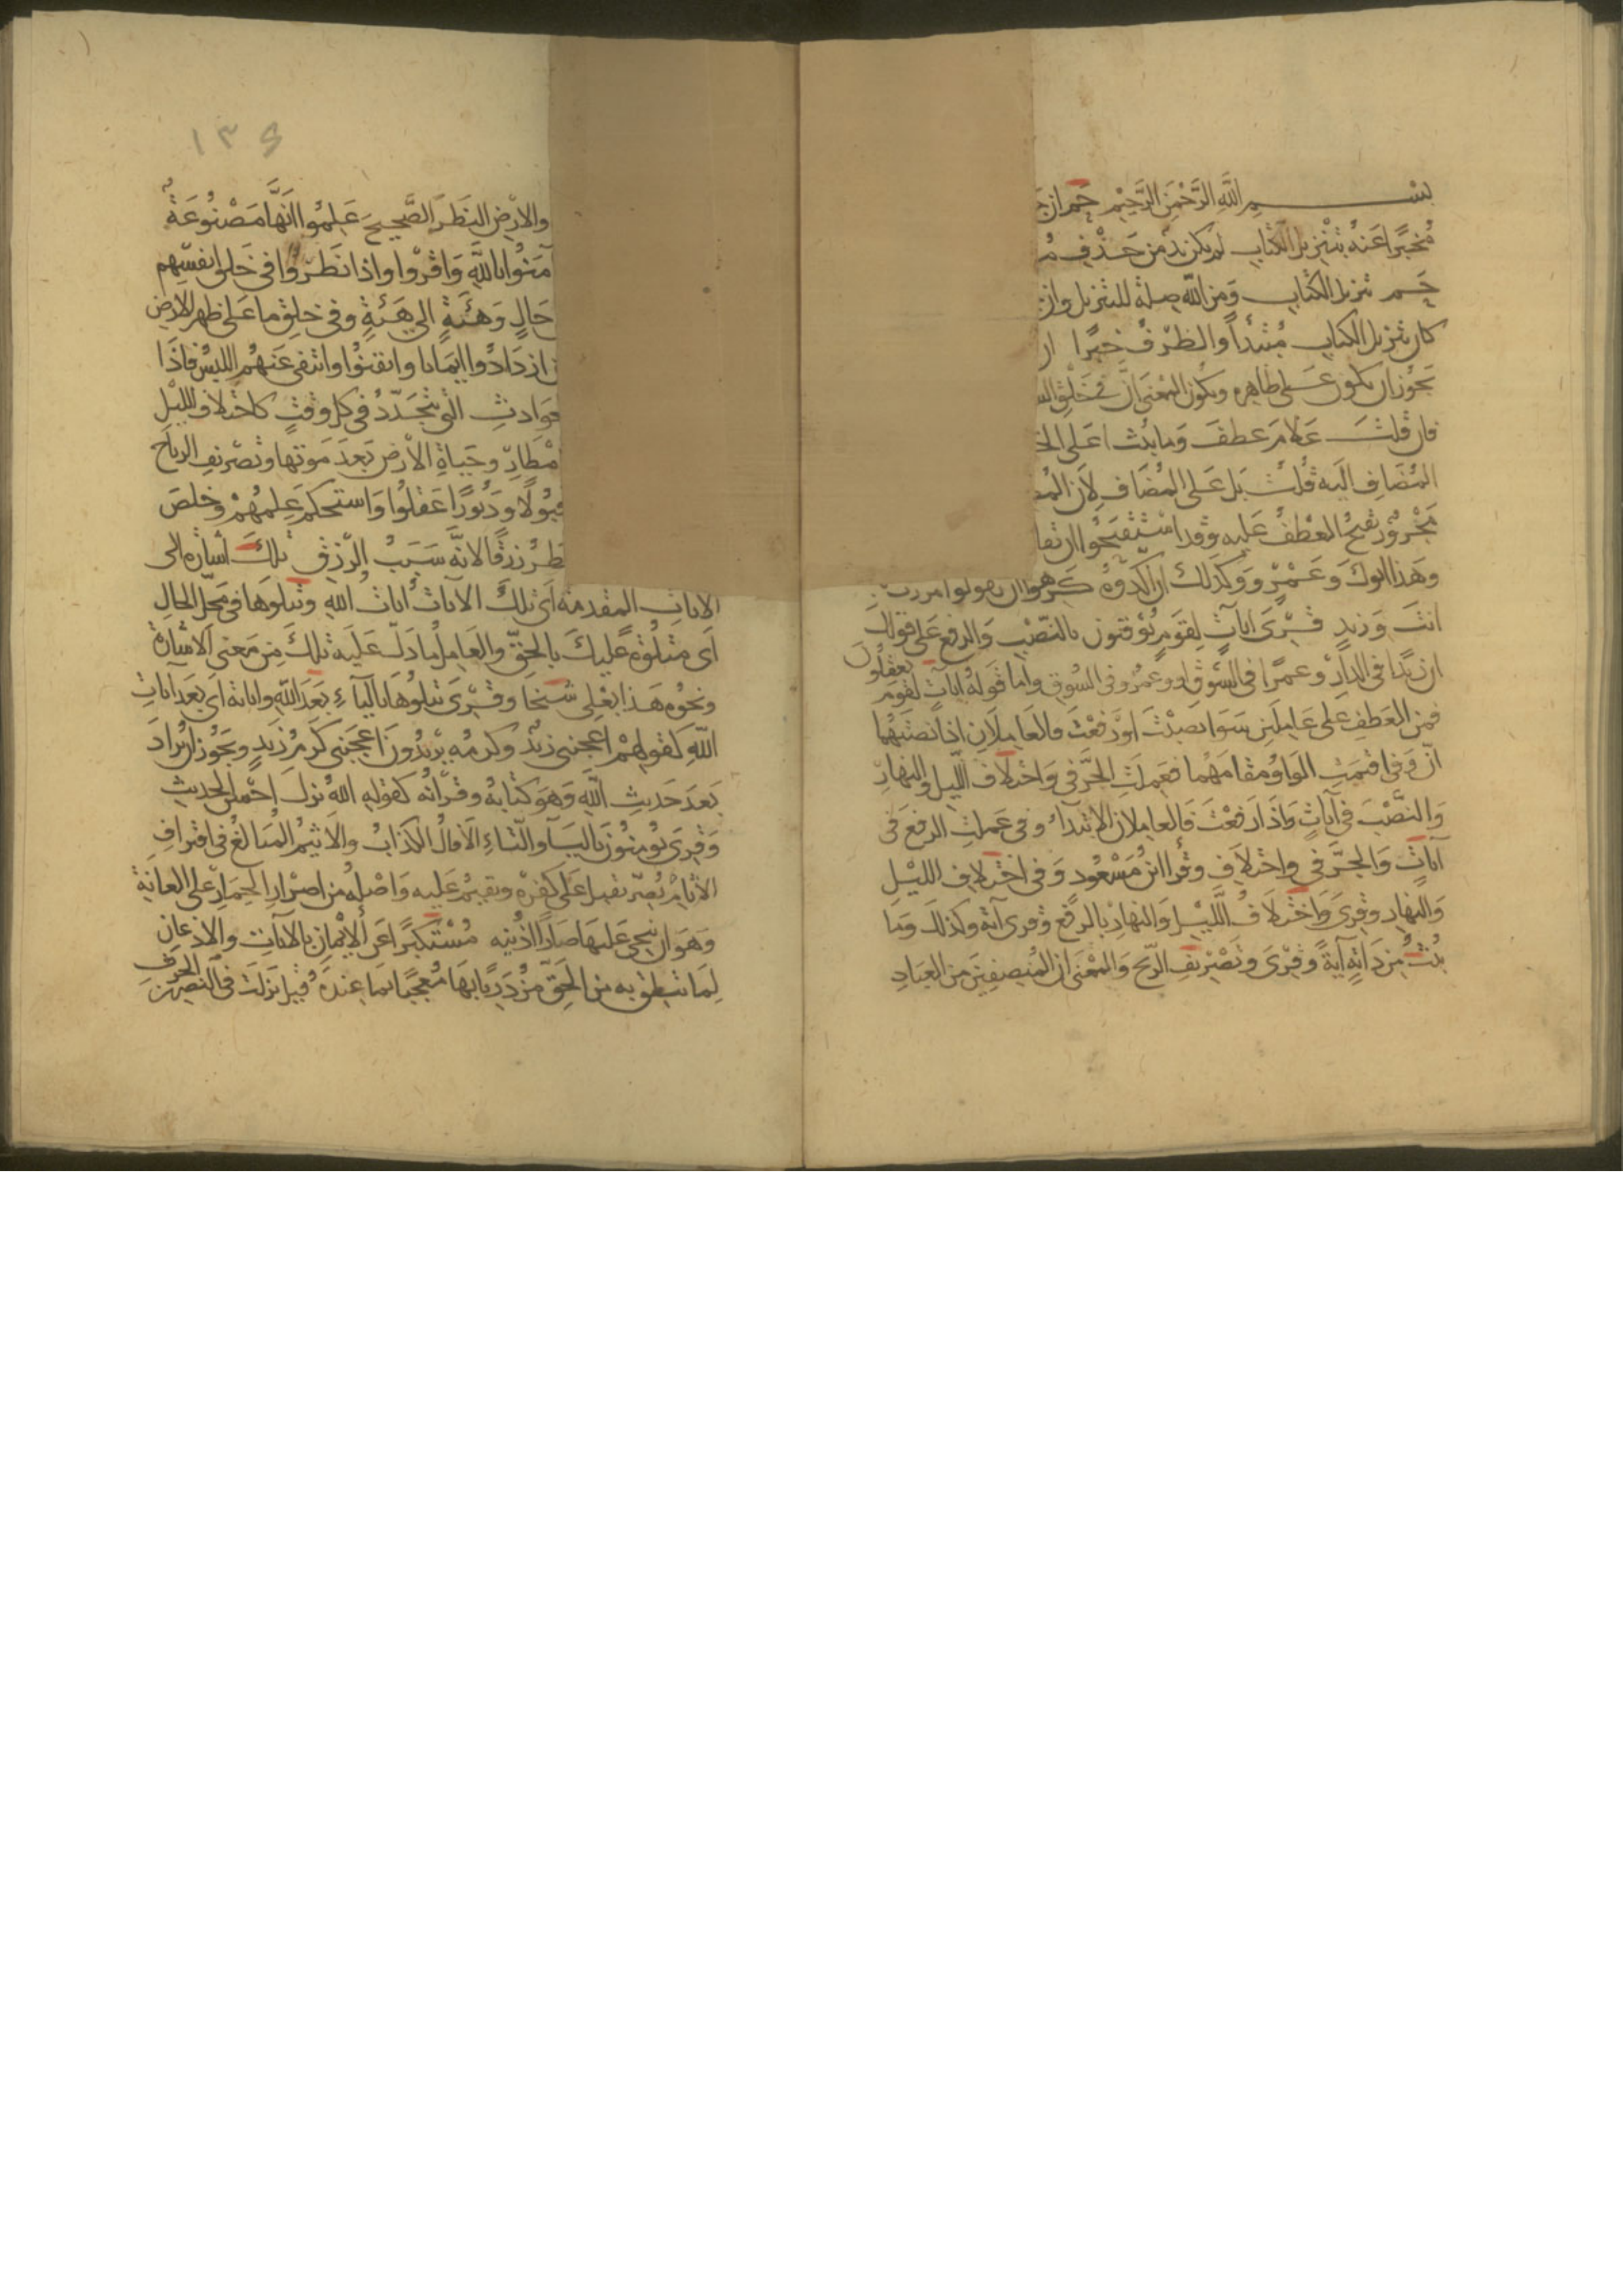 بسم الله الرحمن الرحيم حم ان
مخبرا عنه بتنزيل الكتاب لم يكن بد من حذف
حم تنزيل الكتاب ومن الله صلة للتنزيل وان
كان تنزيل الكتاب مبتدأ والظرف خبرا
يجوز ان يكون على ظاهره ويكون المعنى ان في خلق
فان قلت علام عطف وما يبث اعلى
المضاف اليه قلت بل على المضاف لان
مجرور يقبح العطف عليه وقد استقبحوا ان
وهذا ابوك وعمرو وكذلك ان اكدوه كرهوا ان يقولوا مررت
انت وزيد قرى ايات لقوم يوقنون بالنصب والرفع على قولك
ان زيدا في الدار وعمرا في السوق او وعمرو في السوق واما قوله ايات لقوم يعقلون
فمن العطف على عاملين سوا نصبت او رفعت فالعاملان اذا نصبتهما
ان وفي اقيمت الواو مقامهما فعملت الجر في واختلاف الليل والنهار
والنصب في آيات واذا رفعت فالعاملان الابتداء وفي عملت الرفع في
آيات والجر في واختلاف وقرأ ابن مسعود وفي اختلاف الليل
والنهار وقرى واختلاف الليل والنهار بالرفع وقرى آية وكذلك وما
يبث من دابة آية وقرى وتصريف الريح والمعنى ان المنصفين من العباد
١٣٤
والارض النظر الصحيح علموا انها مصنوعة
آمنوا بالله واقروا واذا نظروا في خلق انفسهم
حال وهئة الى هئة وفي خلق ما على ظهر الارض
ازدادوا ايمانا وايقنوا وانتفى عنهم اللبس فاذا
التي تتجدد في كل وقت كاختلاف الليل
وحياة الارض بعد موتها وتصريف الرياح
ودبورا عقلوا واستحكم علمهم وخلص
رزقا لانه سبب الرزق تلك اشارة الى
الايات المتقدمة اى تلك الآيات آيات الله ونتلوها في محل الحال
اى متلوة عليك بالحق والعامل ما دل عليه تلك من معنى الاشارة
ونحوه هذا بعلى شيخا وقرى يتلوها بالياء بعد الله واياته اى بعد ايات
الله كقولهم اعجبنى زيد وكرمه يريدون اعجبنى كرم زيد ويجوز ان يراد
بعد حديث الله وهو كتابه وقرآنه كقوله الله نزل احسن الحديث
وقرى يومنون بالياء والتاء الافاك الكذاب والاثيم المبالغ في اقتراف
الآثام يصر يقبل على كفره ويقيم عليه واصله من اصرار الحمار على العانة
وهو ان ينحى عليها صارا اذنيه مستكبرا عن الايمان بالآيات والاذعان
لما ينطق به من الحق مزدريا بها معجبا بما عنده قيل نزلت في النضر بن الحرث